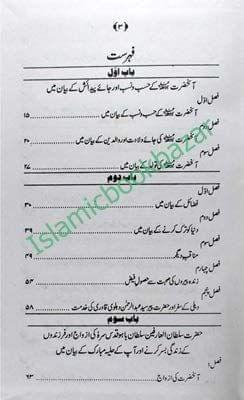 (۳)
فہرست
باب اوّل
آنحضرت کے حسب و نسب اور جائے پیدائش کے بیان میں
فصل اوّل
آنحضرت کے حسب و نسب کے بیان میں ۱۵
فصل دوم
آنحضرت کی جائے ولادت اور والدین کے بیان میں ۲۰
فصل سوم
آنحضرت کی تولد کے بیان میں ۲۷
باب دوم
فصل اوّل
فضائل کے بیان میں ۳۰
فصل دوم
دنیا کو ترک کرنے کے بیان میں ۳۹
فصل سوم
مناقب دیگر ۴۹
فصل چہارم
زندہ پیروں کی صحبت سے حصول فیض ۵۳
فصل پنجم
دہلی کے سفر اور حضرت پیر سید عبدالرحمٰن دہلوی قادری کی خدمت ۵۸
باب سوم
حضرت سلطان العارفین سلطان باہو قدس سرہٗ کی ازواج اور فرزندوں
کے زندگی بسر کرنے اور آپ کے حلیہ مبارک کے بیان میں
فصل ۱
آنحضرت کی ازواج ۷۳
Islamicbookbazar